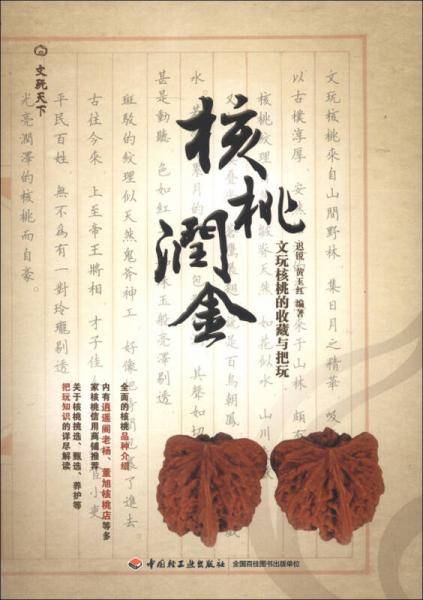 文玩天下
核桃
潤金
文玩核桃的收藏与把玩
迟锐 黄玉红 编著
文玩核桃來自山間野林 集日月之精華 吸
以古樸淳厚
核桃紋理
甚是動聽 色如紅
斑駁的紋理似天然鬼斧神工 好像
古往今來 上至帝王將相 才子佳
平民百姓 無不為有一對玲瓏剔透
光亮潤澤的核桃而自豪。
全面的核桃品种介绍
内有逍遥阁老杨、董旭核桃店等多
家核桃信用商铺推荐
关于核桃挑选、甄选、养护等
把玩知识的详尽解读
中国轻工业出版社
全国百佳图书出版单位